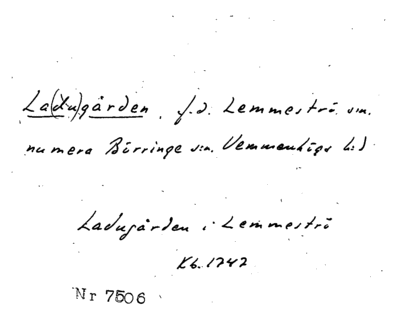 La(du)gården, f.d. Lemmeströ s:n.
numera Börringe s:n. Vemmenhögs h:d
Ladugården i Lemmeströ
Kb. 1747
Nr 7506